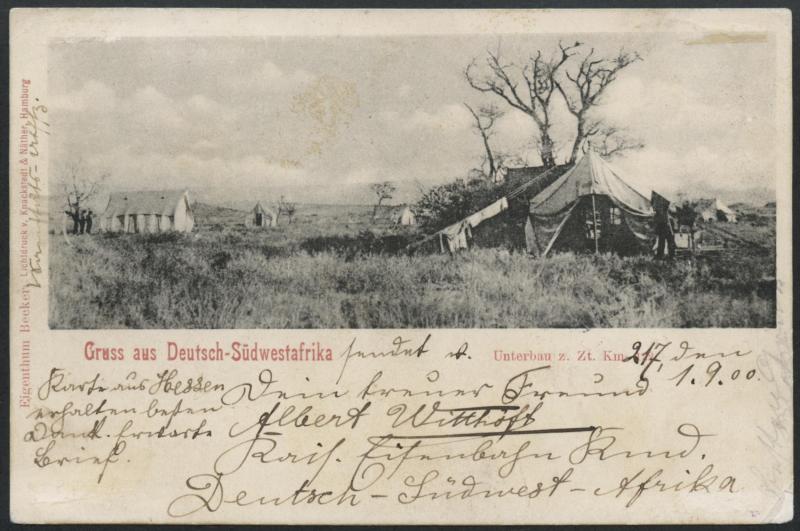 Gruss aus Deutsch-Südwestafrika sendet
Unterbau z. Zt. Km. 217, den
1.9.00.
Dein treuer Freund
Albert Witthöft
Kais. Eisenbahn Kmd.
Deutsch-Südwest-Afrika
Karte aus Hessen
erhalten besten
Dank. Erwarte
Brief.
Eigenthum Becker, Lichtdruck v. Knackstedt & Näther, Hamburg